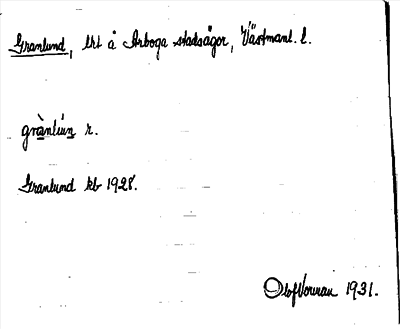 Granlund, lht å Arboga stadsägor, Västmanl. l.
grànlún r.
Granlund kb 1928.
Olof 1931.